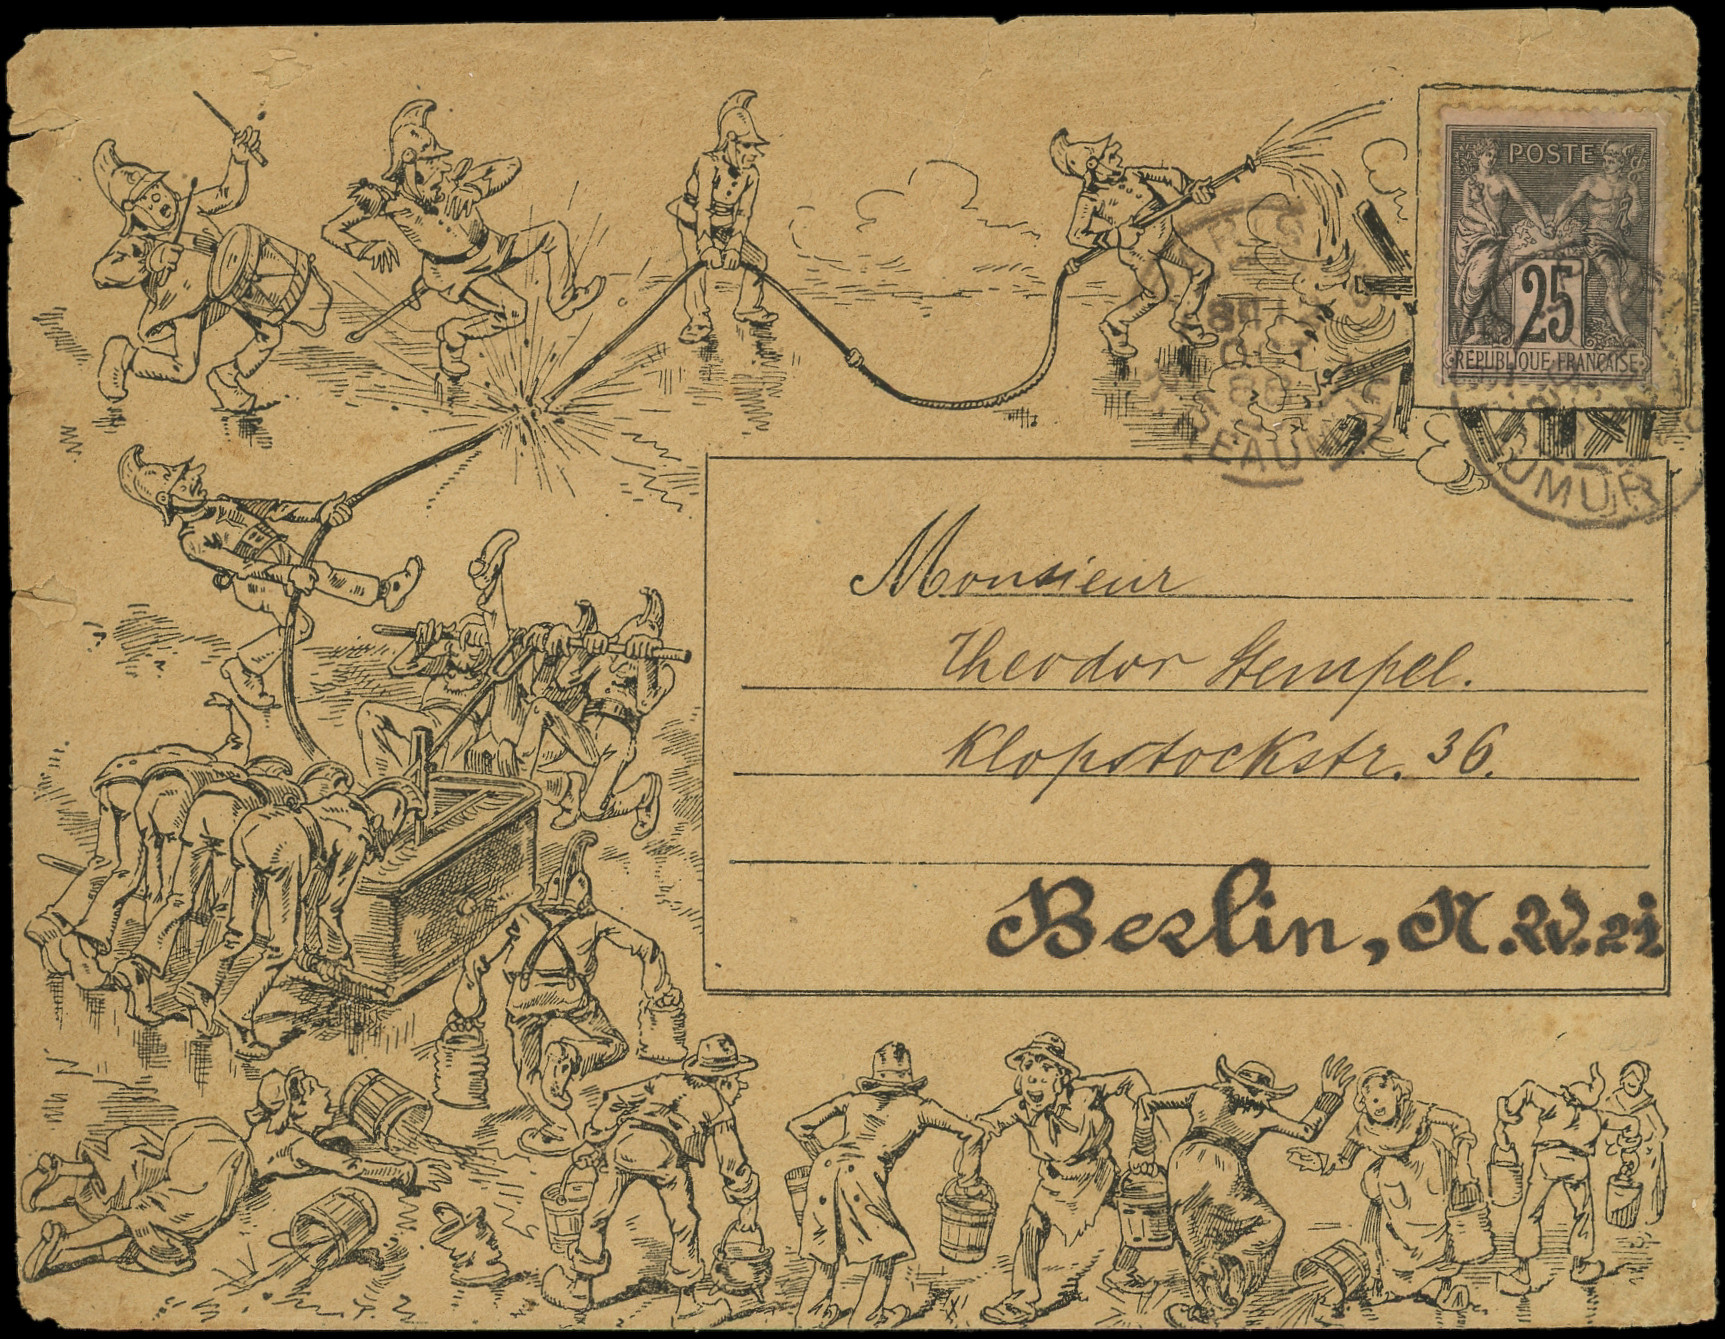 POSTE
25
RÉPUBLIQUE FRANÇAISE
PARIS
OCT
88
R. RÉAUMUR
Monsieur
Theodor Stempel.
Klopstockstr. 36.
Berlin, N.W. 21